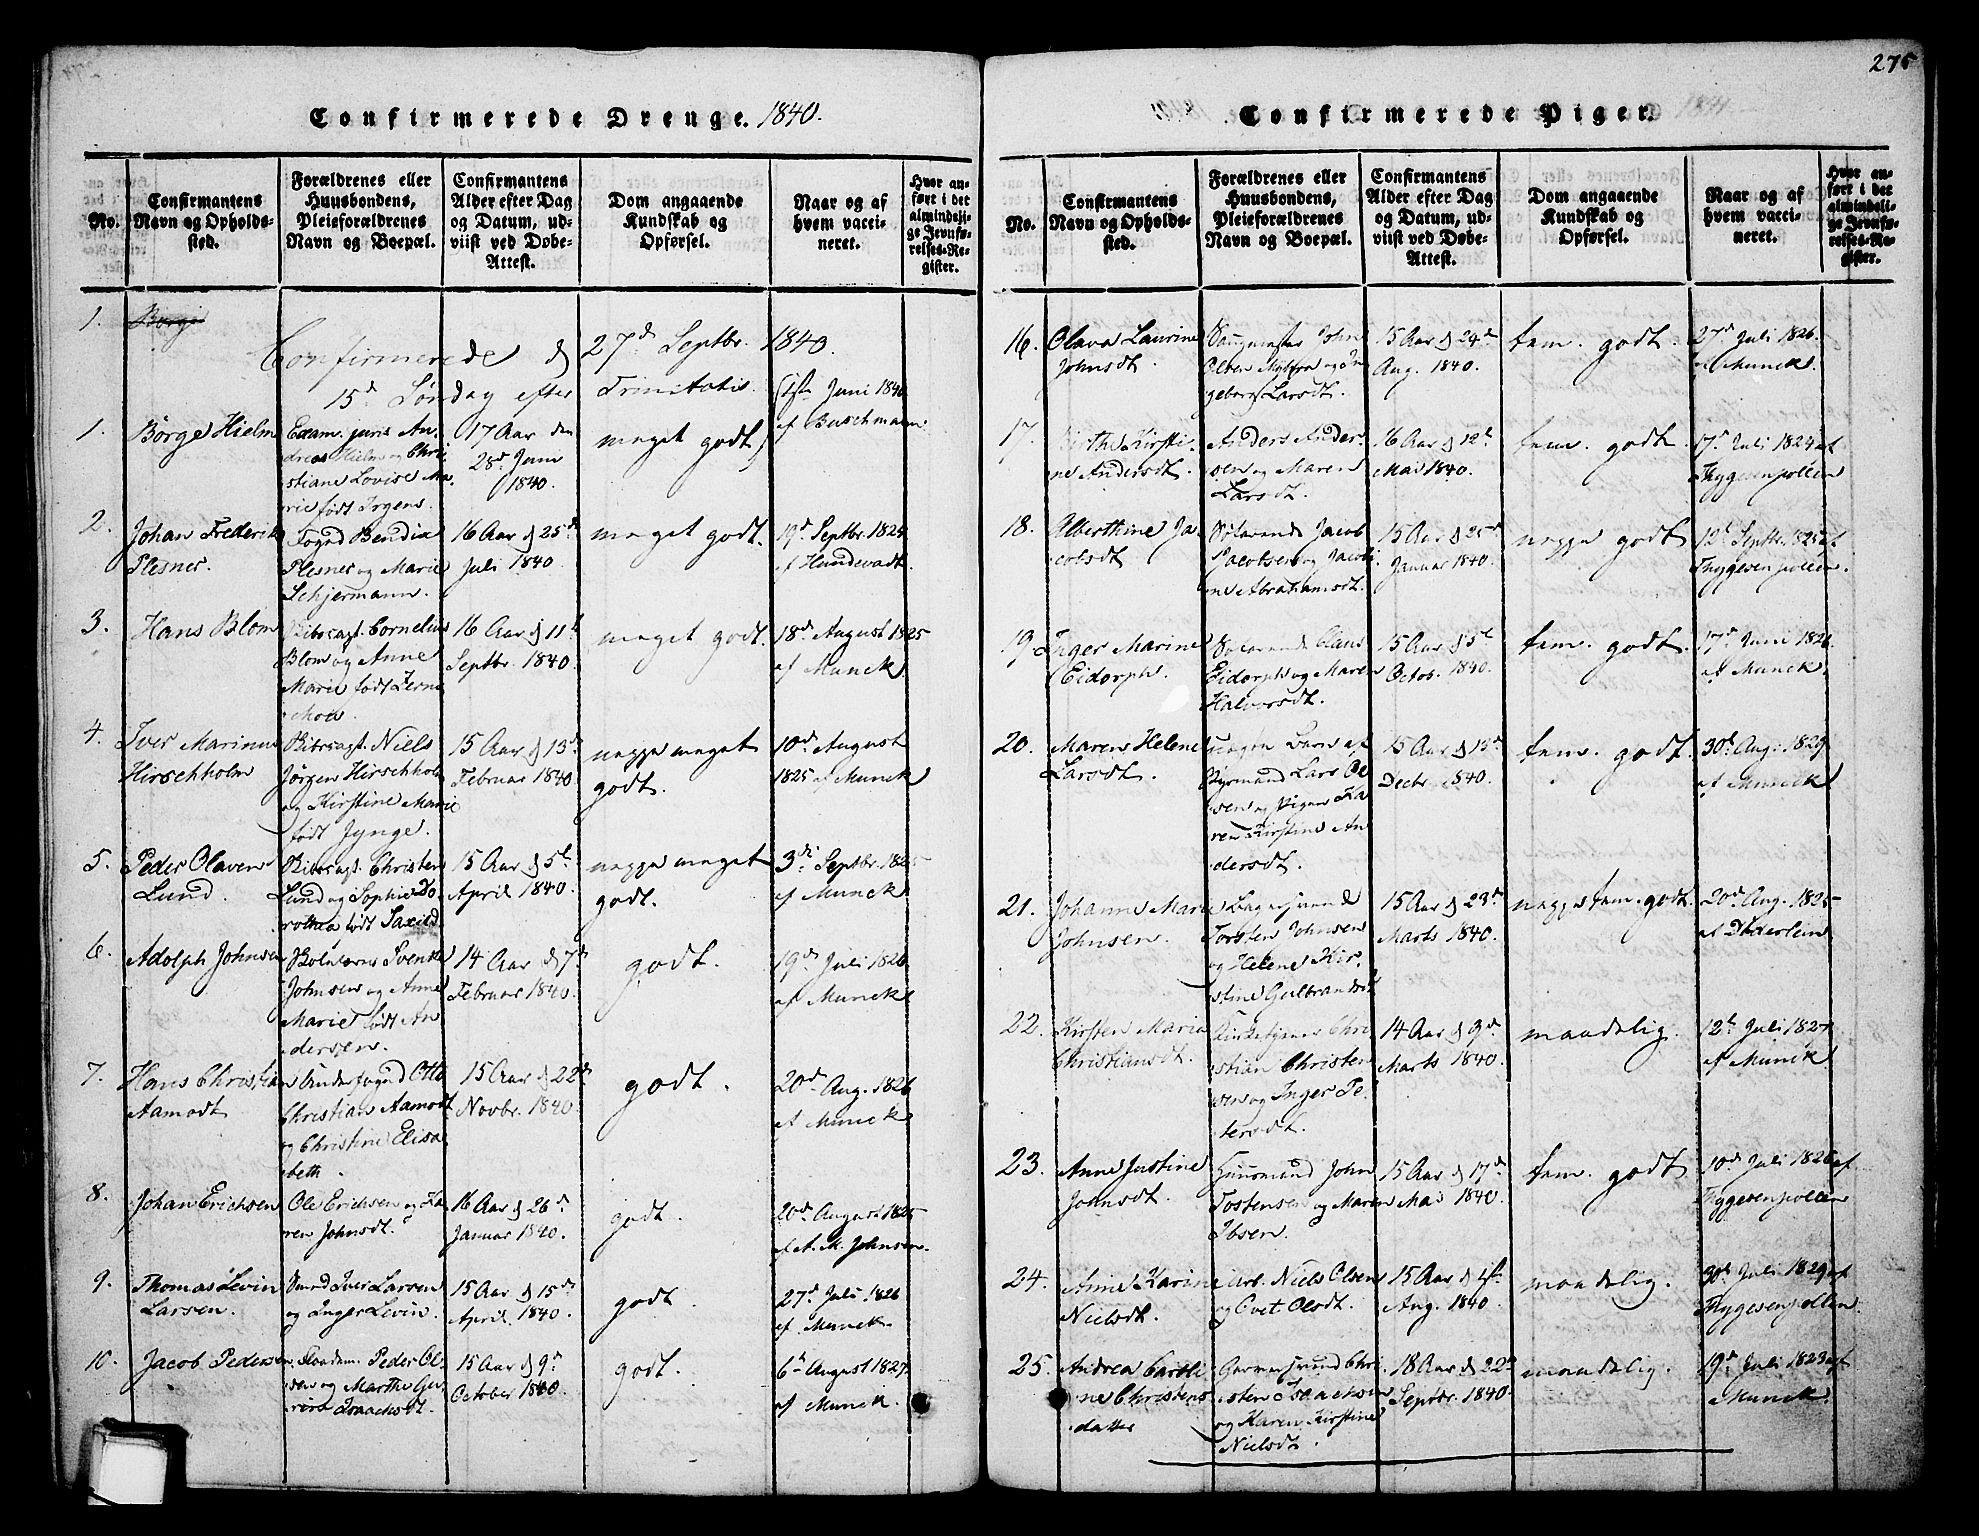 275
Confirmerede Drenge. 1840.
No.
Confirmantens
Navn og Opholds-
sted.
Forældrenes eller
Huusbondens,
Pleieforældrenes
Navn og Boepæl.
Confirmantens
Alder efter Dag
og Datum, ud-
viist ved Døbe-
Attest.
Dom angaaende
Kundskab og
Opførsel.
Naar og af
hvem vacci-
neret.
Hvor an-
ført i det
almindeli-
ge Jevnfø-
relses-Re-
gister.
1. Børge
Confirmerede d 27d Septbr. 1840.
15d Søndag efter Trinitatis.
1.
Børge Hielm
Exam. juris An-
dreas Hielm og Chri-
stiane Lovise Ma-
rie født Irgens.
17 Aar den
28d Juni
1840.
meget godt
1ste Juni 1840
af Buschmann.
2.
Johan Frederik
Plesner.
Foged Bendix
Plesner og Marie
Schjermann.
16 Aar d 25de
Juli 1840.
meget godt.
19d Septbr. 1824
af Hundevadt.
3.
Hans Blom
Cornelius
Blom og Anne
Marie født
16 Aar d 11te
Septbr. 1840.
meget godt.
18d August 1825
af Munck
4.
Iver Marinus
Hirschholm
Niels
Jørgen Hirschholm
og Kirstine Marie
født Jynge.
15 Aar d 13de
Februar 1840
godt.
10d August
1825 af Munck
5.
Peder Olaven
Lund.
Christen
Lund og Sophie Do-
rothea født Saxild.
15 Aar d 5te
April 1840.
godt.
3die Septbr. 1825
af Munck
6.
Adolph Johnsen
Svenke
Johnsen og Anne
Marie født An-
dersen.
14 Aar d 7de
Februar 1840.
godt.
19d Juli 1826
af Munck
7.
Hans Christian
Aamodt
Underfoged Otto
Christian Aamodt
og Christine Elisa-
beth.
15 Aar d 22de
Novbr. 1840.
godt.
20d Aug. 1826
af Munck
8.
Johan Erichsen
Ole Erichsen og Ka-
ren Johnsdt.
16 Aar d 26d
Januar 1840.
godt.
20d August 1825
af A. M. Johnsen.
9.
Thomas Levin
Larsen.
Iver Larsen
og Inger Levin.
15 Aar d 15de
April. 1840.
godt.
27d Juli 1826
af Munck.
10.
Jacob Pedersen
Peder Ol-
sen og Marthe Gu-
Isaachsdt.
15 Aar d 9d
October 1840.
godt.
6te August 1827.
af Munck.
Confirmerede Piger.
No.
Confirmantens
Navn og Opholds-
sted.
Forældrenes eller
Huusbondens,
Pleieforældrenes
Navn og Boepæl.
Confirmantens
Alder efter Dag
og Datum, ud-
viist ved Døbe-
Attest.
Dom angaaende
Kundskab og
Opførsel.
Naar og af
hvem vacci-
neret.
Hvor an-
ført i det
almindeli-
ge Jevnfø-
relses-Re-
gister.
16.
Olava Laurine
Johnsdt.
John
Olsen og In-
geborg Larsdt.
15 Aar d 24de
Aug. 1840.
tem. godt.
27d Juli 1826
af Munck.
17.
Birthe Kirsti-
ne Andersdt.
Anders Ander-
sen og Maren
Larsdt.
16 Aar d 12te
Mai 1840.
tem. godt.
17d Juli 1824 af
Thygesenpollen
18.
Alberthine Ja-
cobsdt.
Jacob
Jacobsen og Jacobi-
ne Abrahamsdt.
15 Aar d 25de
Januar 1840.
neppe godt
12te Septbr. 1825 af
Thygesenpollen.
19
Inger Marine
Eidorph.
Claus
Eidorph og Maren
Halvorsdt.
15 Aar d 5te
Octob. 1840.
tem. godt.
17d Juni 1826.
af Munck.
20.
Maren Helene
Larsdt.
uægte Barn af
Lars Ol-
sen og Pigen Ka-
ren Kirstine An-
dersdt.
15 Aar d 15de
Decbr. 1840.
tem. godt.
30d Aug. 1829
af Munck
21.
Johanne Marie
Johnsen.
Torsten Johnsen
og Helene Kir-
stine Gulbrandsdt
15 Aar d 23de
Marts 1840.
neppe tem. godt.
20d Aug. 1825
af Døderlein
22.
Kirsten Maria
Christiansdt.
Chri-
stian Christen-
sen og Inger Pe-
tersdt.
14 Aar d 9d
Marts 1840.
maadelig.
12te Juli 1827
af Munck
23.
Anne Justine
Johnsdt.
Huusmand John
Tostensen og Maren
Ibsen.
15 Aar d 17de
Mai 1840.
tem. godt.
10d Juli 1826 af
Thygesenpollen
24.
Anne Karine
Nielsdt.
Arb. Niels Olsen
og Olsdt.
15 Aar d 1ste
Aug. 1840.
maadelig.
30d Juli 1829 af
Thygesenpollen.
25.
Andrea Carthi-
ne Christens-
datter
Chri-
sten Isaachsen
og Karen Kirstine
Nielsdt.
18 Aar d 22de
Septbr. 1840.
maadelig.
19d Juli 1823 af
Munck.